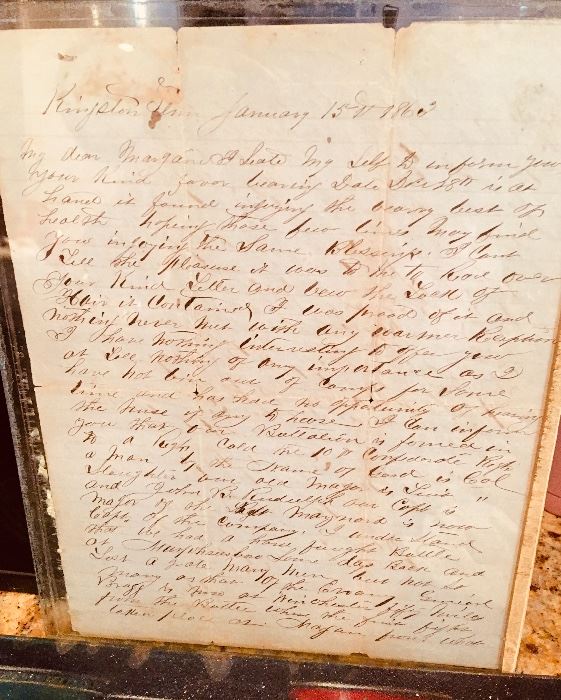 Kingston Tenn January 15th 1863
My dear Margaret I Seate My Self to inform you
your Kind favor bearing Date Dec 28th is at
hand it found injoying the very best of
health hoping these few lines May find
you injoying the Same Blessings I Cant
Tell the pleasure it was to me to Look over
your Kind Letter and view the Lock of
Hair it Contained I was proud of it and
nothing Never Met with any warmer Reception
I have nothing interesting to offer you
at all nothing of any importance as I
have not bin out of Camp for Some
time and has had no opportunity of hearing
the news if any to hear I Can inform
you that our Battalion is formed in
to a Regt Cald the 10th Confederate Regt
a man by the Name of is Col
our old Major is Lieu "
and John B Rudulph our Capt is
Major Maynard is now
Capt of the Company I under Stand
that we had a hard fought Battle
at Murphreesboro Some days Back and
Lost a grate Many Men but not So
Many as that of the Enemy
Bragg is now at Winchester fifty Miles
from the Battle when the firs fight
taken place